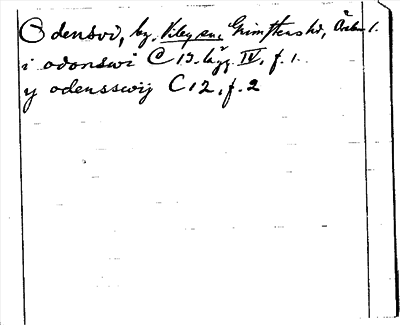 Odensvi, by, Viby sn, Grimstens hd, Örebro l.
i odonswi C 13. lägg IV, f. 1.
y odensswij C 12, f. 2